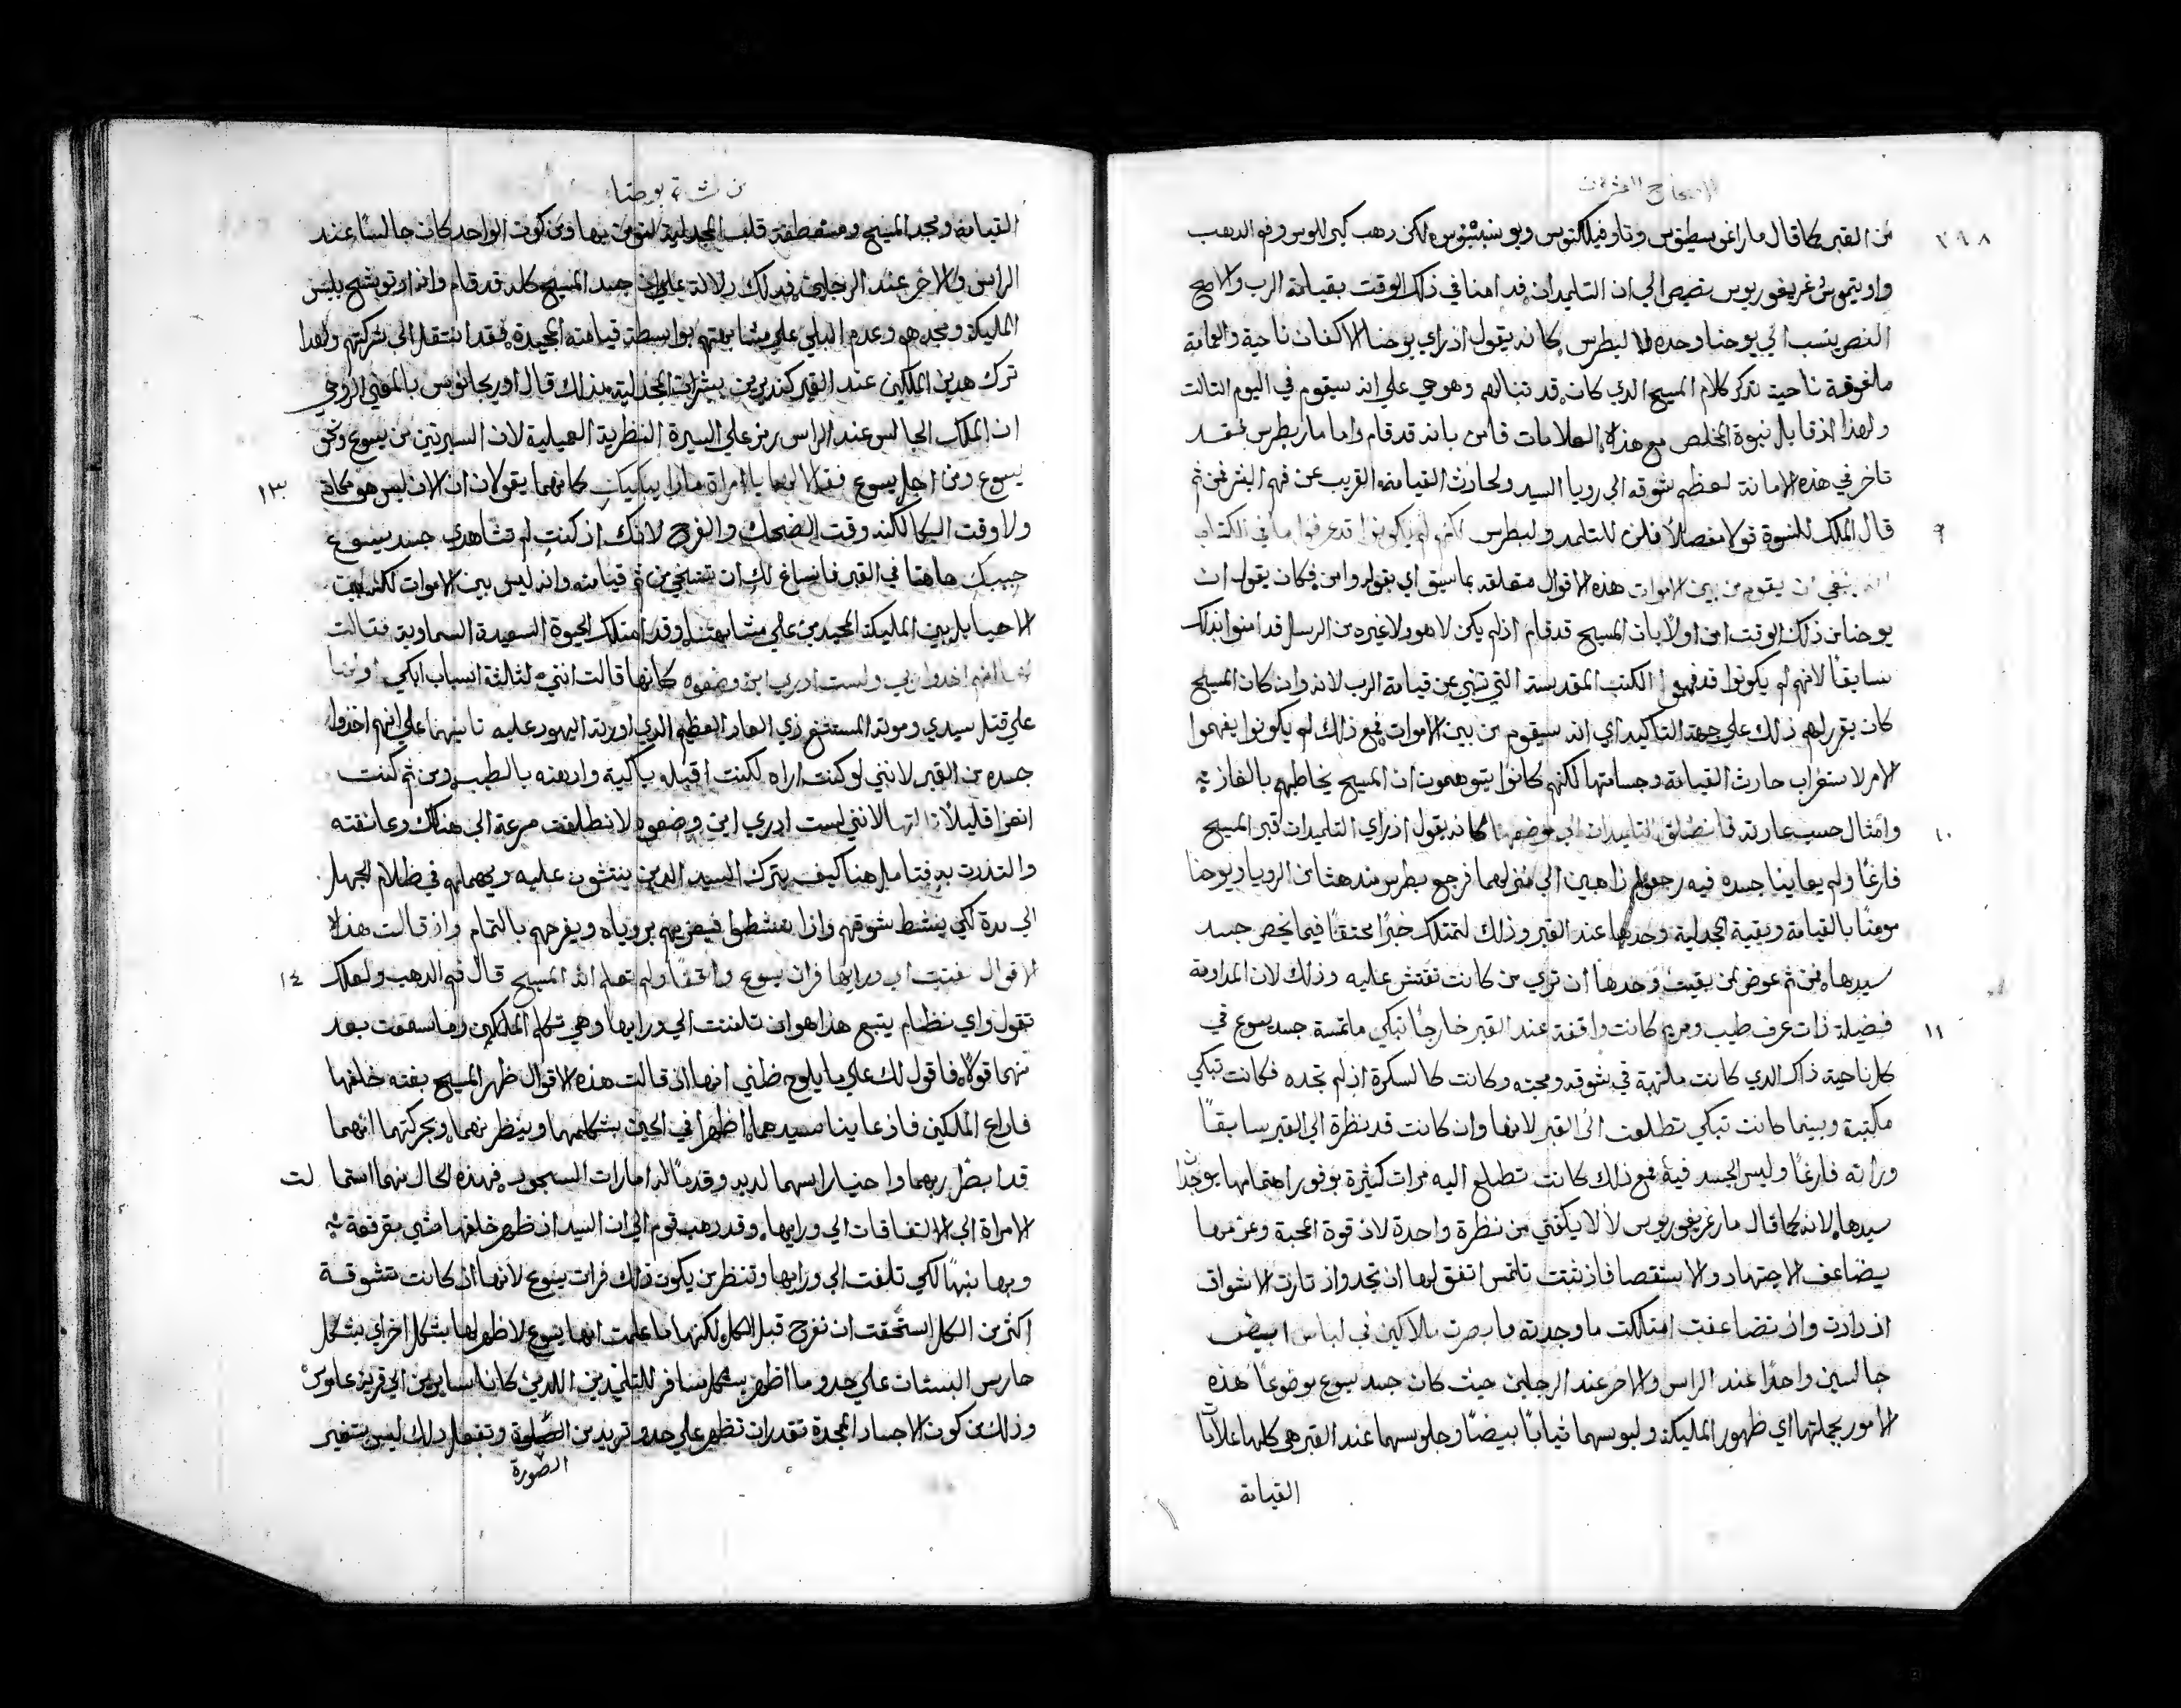 الاصحاح العشرون
٢٩٨
من القبر كما قال مار اغوسطينوس وتاوفيلكتوس ويوسنينوس لكن رهب كيرللوس وفم الدهب
واوتيموس وغريغوريوس نصيصي الي ان التلميدان قد امنا في ذلك الوقت بقيامة الرب والاصح
النص ينسب الي يوحنا وحده لا لبطرس كانه يقول اذ راي يوحنا الاكفان ناحية والعمامة
ملفوفة ناحية تذكر كلام المسيح الدي كان قد تنبا لهم وهو حي علي انه سيقوم في اليوم التالت
ولهذا اذ قابل نبوة المخلص مع هذه العلامات قامن بانه قد قام واما مار بطرس فقد
تاخر في هذه الامانة لعظم شوقه الي رويا السيد ولحادث القيامة الغريب عن فهم البشر فمن ثم
٩
قال الملك للنسوة قولا مفصلا قلن للتلاميد ولبطرس لكنهم لم يكونوا قد عرفوا ما في الكتاب
انه ينبغي ان يقوم من بين الاموات هذه الاقوال متعلقة بما سبق اي بقوله وامن فكان يقول ان
يوحنا من ذلك الوقت امن اولا بان المسيح قد قام اذ لم يكن لا هو ولا غيره من الرسل قد امنوا بذلك
سابقا لانهم لم يكونوا قد فهموا الكتب المقدسة التي تنبي عن قيامة الرب لانه وان كان المسيح
كان يقرر لهم ذلك علي جهة التاكيد اي انه سيقوم من بين الاموات فمع ذلك لم يكونوا يفهموا
الامر لاستغراب حادث القيامة وجسامتها لكنهم كانوا يتوهمون ان المسيح يخاطبهم بالغازيه
١٠
وامثال حسب عادته فانطلق التلميدان الي موضعهما كانه يقول اذ راي التلميدان قبر المسيح
فارغا ولم يعاينا جسده فيه رجعوا ذاهبين الي منزلهما فرجع بطرس مندهشا من الرويا ويوحنا
مومنا بالقيامة وبقية المجدلية وحدها عند القبر وذلك لتمتلك خبرا محققا فيما يخص جسد
سيدها فمن ثم عوض من بقيت وحدها ان تري من كانت تفتش عليه وذلك لان المداومة
١١
فضيلة ذات عرف طيب ومريم كانت واقفة عند القبر خارجا تبكي ملتمسة جسد يسوع في
كل ناحية ذاك الدي كانت ملتهبة في شوقه ومحبته وكانت كالسكرة اذ لم تجده فكانت تبكي
مكتبة وبينما كانت تبكي تطلعت الي القبر لانها وان كانت قد نظرة الي القبر سابقا
وراته فارغا وليس الجسد فيه فمع ذلك كانت تطلع اليه مرات كثيرة بوفور اهتمامها بوجدان
سيدها لانه كما قال مار غريغوريوس لا لا يكتفي من نظرة واحدة لان قوة المحبة وعزمها
يضاعف الاجتهاد والاستقصا فاذ ثبتت تلتمس اتفق لها ان تجد واذ تارت الاشواق
ازدادت واذ تضاعفت امتلكت ما وجدته وابصرت ملاكين في لباس ابيض
جالسين واحدا عند الراس والاخر عند الرجلين حيث كان جسد يسوع موضوعا هذه
الامور بجملتها اي ظهور المليكة ولبوسهما ثيابا بيضا وجلوسهما عند القبر هي كلها علامات
القيامة
من بشارة يوحنا
القيامة ومجد المسيح ومستعطفة قلب المجدلية لتومن بها ومن كون الواحد كان جالسا عند
الراس والاخر عند الرجلين فدلك دلالة علي ان جسد المسيح كله قد قام وانه اذ توشح بلبس
المليكة ومجدهم وعدم البلي علي مشابهتهم بواسطة قيامته المجيدة فقد انتقل الي شركتهم ولهدا
ترك هدين الملكين عند القبر كنديرين يبشران المجدلية بذلك قال اوريجانوس بالمعني الروحي
ان الملك الجالس عند الراس رمز علي السيرة النظرية العميلية لان السيرتين من يسوع ونحو
١٣
يسوع ومن اجل يسوع فقالا لها يا امراة مادا يبكيك كانهما يقولان ان الان ليس هو مكان
ولا وقت البكا لكنه وقت الضحك والفرح لانك اذ كنت لم تشاهدي جسد يسوع
حبيبك هاهنا في القبر فانساغ لك ان تستنتجي من ثم قيامته وانه ليس بين الاموات لكنه بين
الاحيا بل بين المليكة المجيدين علي مشابهتنا وقد امتلك الحيوة السعيدة السماوية فقالت
لهما انهم اخدوا ربي ولست ادري اين وضعوه كانها قالت انني لتلثة اسباب ابكي اولها
علي قتل سيدي وموته المستفظع ذي العار العظيم الدي اورثه اليهود عليه ثانيهما علي انهم اخذوا
جسده من القبر لانني لو كنت اراه لكنت اقبله باكية وادهنه بالطيب ومن ثم كنت
اتعزا قليلا ثالثها لانني لست ادري اين وضعوه لانطلقت مسرعة الي هناك وعانقته
والتذدت به فتامل هنا كيف يترك السيد الدين يفتشون عليه ويهملهم في ظلام الجهل
الي مدة لكي ينشط شوقهم واذا تنشطوا فيعزيهم بروياه ويفرحهم بالتمام واذ قالت هذه
١٤
الاقوال التفتت الي ورايها فرات يسوع واقفا ولم تعلم انه المسيح قال فم الدهب ولعلك
تقول واي نظام يتبع هذا هو ان تلتفت الي ورايها وهي تكلم الملكين وما سمعت بعد
منهما قولا فاقول لك علي ما يلوح بظني انها اذ قالت هذه الاقوال ظهر المسيح بغته خلفها
فاراع الملكين فاذ عاينا سيدهما اظهرا في الحين بشكلهما وبنظرهما وبحركتهما انهما
قد ابصرا ربهما واحنيا راسهما لديه وقدما له امارات السجود فهذه الحال منهما استمالت
الامراة الي الالتفات الي ورايها وقد رهب قوم الي ان السيد اذ ظهر خلفها مشي بقرقعة ثم
وبها نبهها لكي تلتفت الي ورايها وتنظر من يكون ذلك فرات يسوع لانها اذ كانت متشوقة
اكثر من الكل استحقت ان تفرح قبل الكل لكنها ما علمت انه يسوع لاظهر لها بشكل اخر اي بشكل
حارس البستان علي حدو ما اظهر بشكل مسافر للتلميذين اللدين كانا سايرين الي قرية عماوس
وذلك من كون الاجساد الممجدة تقدر ان تظهر علي حدو تريد من الصورة وتفعل دلك ليس بتغير
الصورة